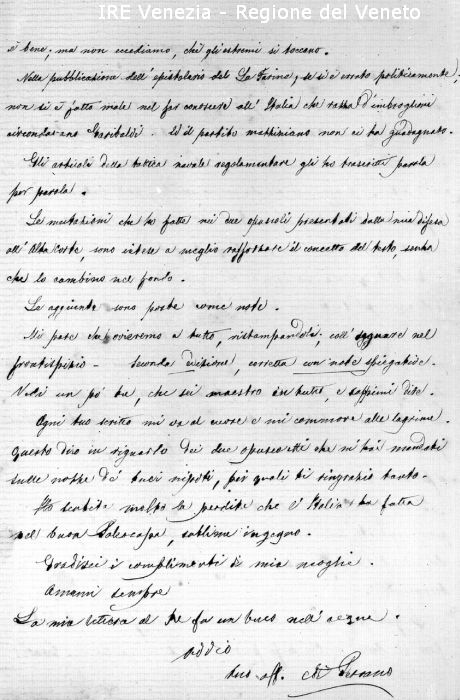 IRE Venezia - Regione del Veneto
è bene; ma non eccediamo, chè gli estremi si toccano.
Nella pubblicazione dell'epistolario del La Farina, se si è errato politicamente,
non si è fatto male nel far conoscere all'Italia che razza d'imbroglioni
circondavano Garibaldi - il partito mazziniano non ci ha guadagnato.
Gli articoli della tattica navale regolamentare gli ho trascritti parola
per parola.
Le mutazioni che ho fatte nei due opuscoli presentati dalla mia difesa
all'Alta Corte, sono intese a meglio rafforzare il concetto del testo, senza
che lo cambino nel fondo.
Le aggiunte sono poste come note.
Mi pare che ovieremo a tutto, ristampandoli, coll' segnare nel
frontispizio - seconda edizione, corretta con note spiegative.
Vedi un pò tu, che sei maestro in tutto, e sappimi dire.
Ogni tuo scritto mi va al cuore e mi commove alle lagrime.
Questo dico in riguardo dei due opuscoletti che m'hai mandati
sulle nozze de' tuoi nipoti, pei quali ti ringrazio tanto.
Ho sentita molto la perdita che l'Italia ha fatta
nel buon Paleocapa, sublime ingegno.
Gradisci i complimenti di mia moglie.
Amami sempre
La mia lettera al Re fa un buco nell'acqua.
addio
tuo aff. di Persano